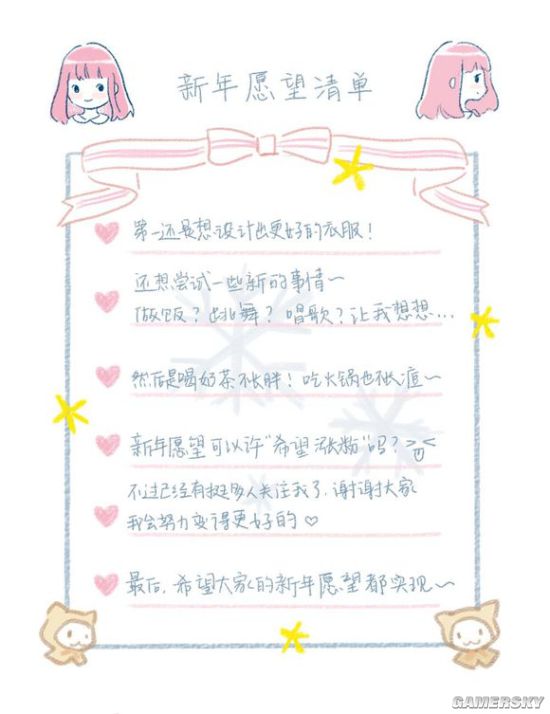 新年愿望清单
第一还是想设计出更好的衣服！
还想尝试一些新的事情~
做饭？跳舞？唱歌？让我想想...
然后是喝奶茶不长胖！吃火锅也不长痘~
新年愿望可以许“希望涨粉”吗？
不过已经有挺多人关注我了，谢谢大家
我会努力变得更好的♡
最后，希望大家的新年愿望都实现~
GAMERSKY